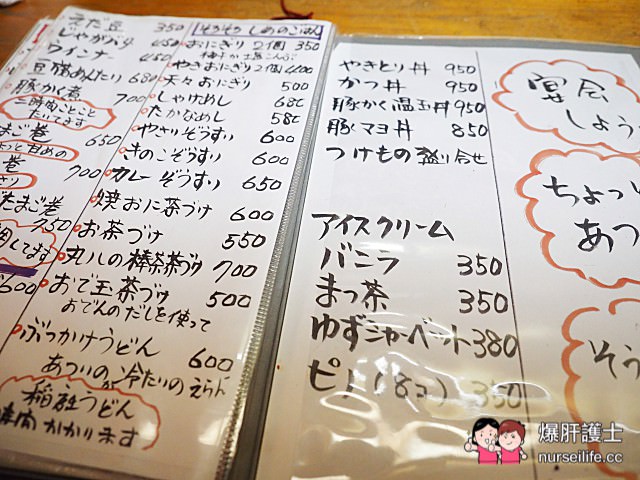 えだ豆 350
じゃがバタ 450
ウインナー 450
豆腐めんたい 680
豚かく煮 700
二時間ことこと
たいてます
たまご巻 650
巻 700
だてたまご巻 750
してます
600
そろそろ しめのごはん
おにぎり2個 350
梅子か土居こんぶ
やきおにぎり2個 400
天々おにぎり 500
しゃけめし 680
たかなめし 580
やさいぞうすい 600
きのこぞうすい 600
カレーぞうすい 650
焼おに茶づけ 600
お茶づけ 550
丸いしの棒茶茶づけ 700
おで玉茶づけ 500
おでんのだしを使って
ぶっかけうどん 600
あついのか冷たいのえらんで
稲庭うどん
時間かかります
やきとり丼 950
かつ丼 950
豚かく温玉丼 950
豚マヨ丼 850
つけもの盛り合せ
アイスクリーム
バニラ 350
まっ茶 350
ゆずシャーベット 380
ピノ(8コ) 350
宴会
しょう
ちょっ
あつ
そう
爆肝護士
nurseilife.cc